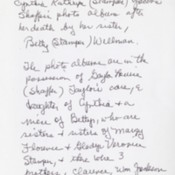 Cynthia Kathryn (Stamper)
Shaffer photo album after
her death by her sister,
Betty (Stamper) Wellman.
The photo albums are in the
possession of Gayla
(Shaffer) Taylor's care, a
daughter of Cynthia & a
niece of Bettys, who are
sisters & sisters of Margy
Florence & Gladys Veronic
Stamper, & the were 3
brothers, Clarence, Wm